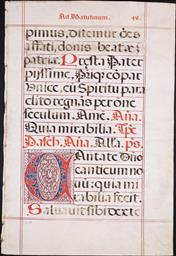 Ad Matutinum. 49.
pimus, Ditemur de
astati, donis beatæ
patriæ. Presta Pater
piissime, Patriqʒ compar
Unice, cu Spiritu para
clito regnas per omne
seculum. Amē. Aña.
Quia mirabilia. Tpe
Pasch. Aña. Alla. ps.
Cantate Dño
canticum no
vu: quia mi
rabilia fecit.
Salvavit sibi dexte